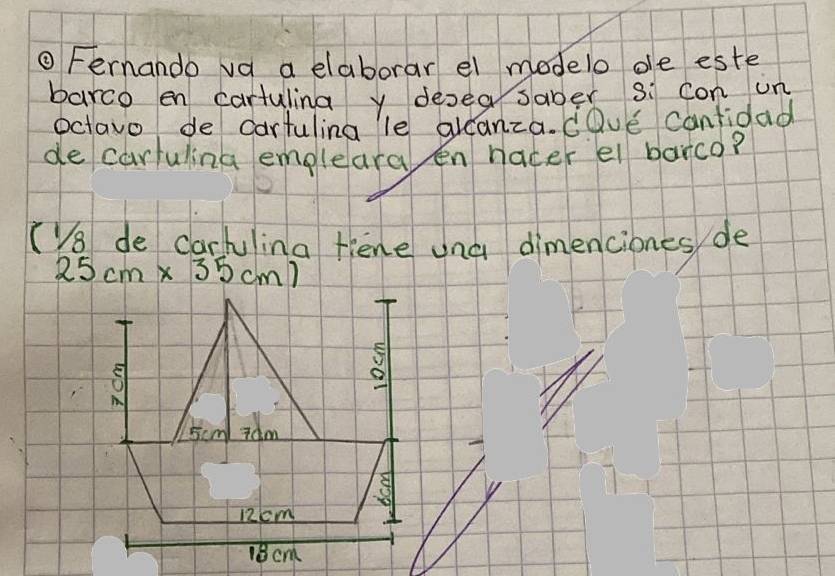 Fernando va a elaborar el modelo de este
barco en cartulina y desea saber si con un
octavo de cartulina le alcanza. ¿Qué cantidad
de cartulina empleara en hacer el barco?
(1/8 de cartulina tiene una dimenciones de
25 cm x 35 cm)
7cm
10cm
5cm 7cm
12cm
18cm